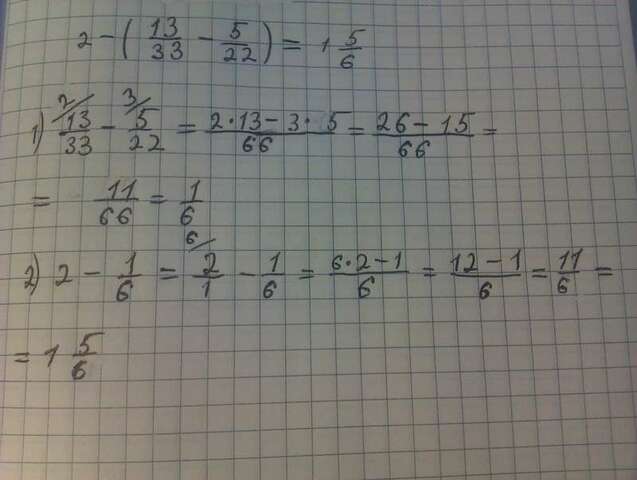 2 - (13/33 - 5/22) = 1 5/6
1) 13/33 (2/ - 5/22 (3/ = 2·13 - 3·5/66 = 26 - 15/66 =
= 11/66 = 1/6
2) 2 - 1/6 = 2/1 (6/ - 1/6 = 6·2 - 1/6 = 12 - 1/6 = 11/6 =
= 1 5/6